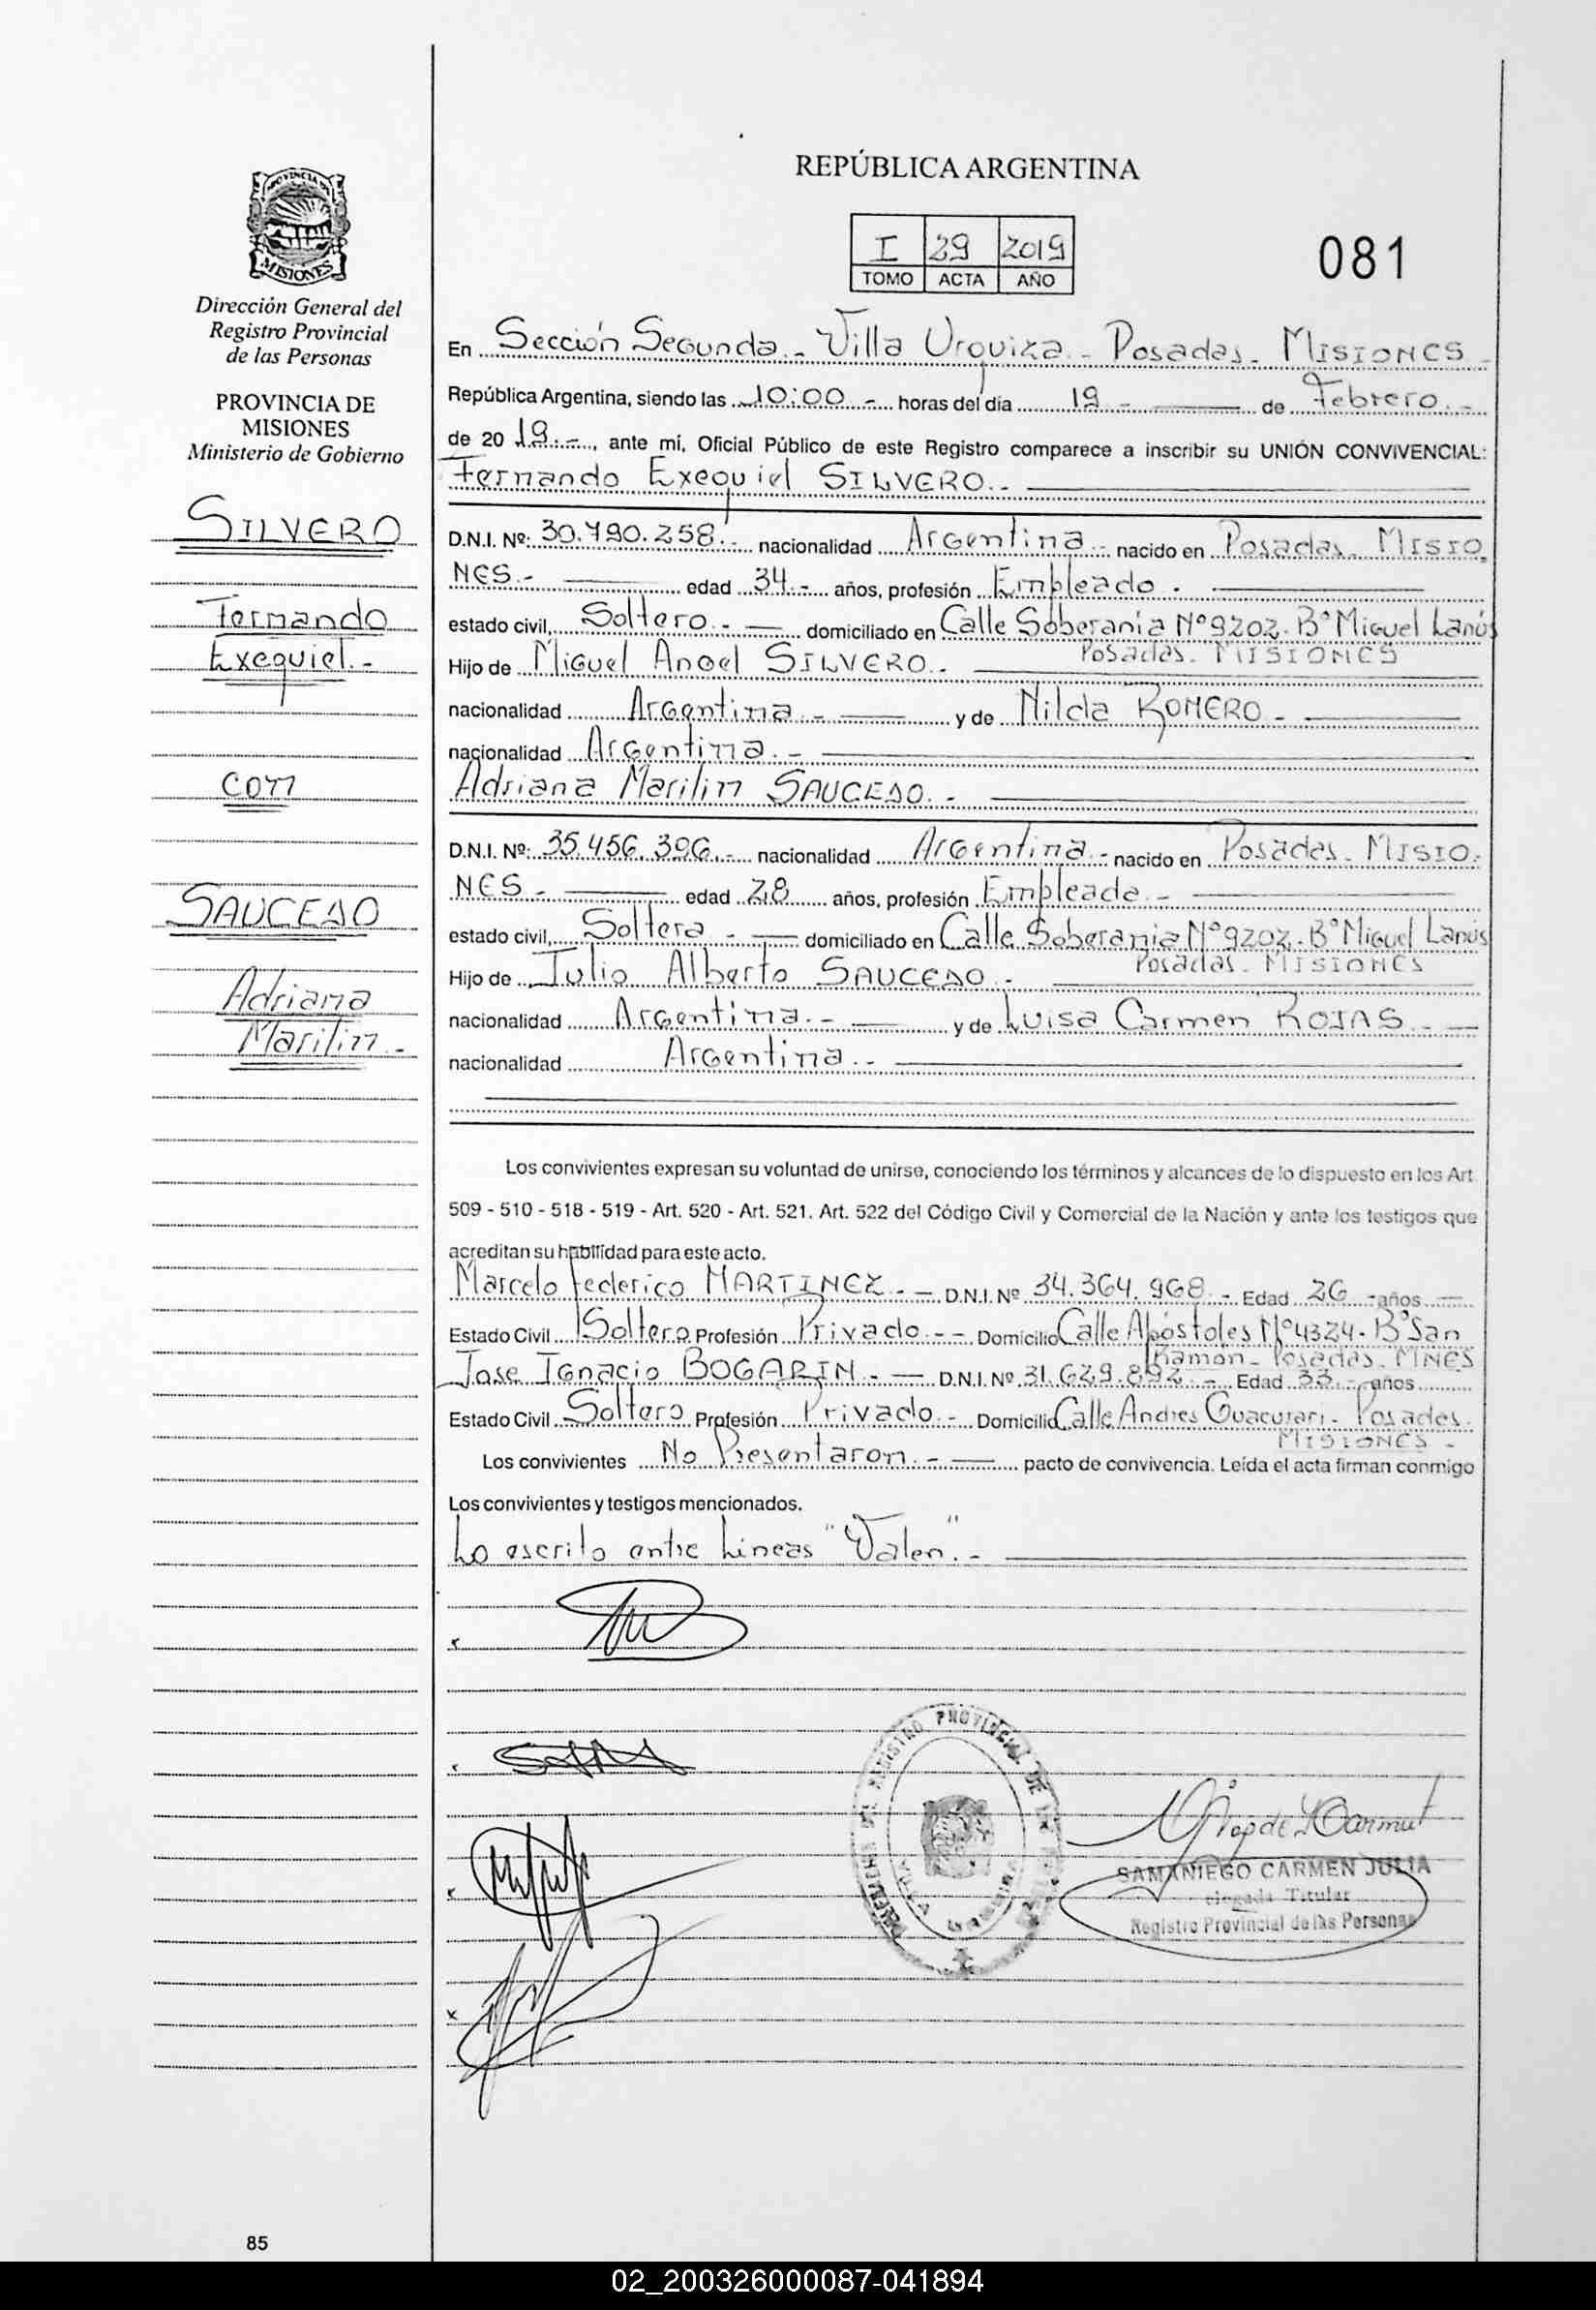 REPÚBLICA ARGENTINA
I 29 2019
TOMO ACTA AÑO
081
PROVINCIA DE
MISIONES
Dirección General del
Registro Provincial
de las Personas
PROVINCIA DE
MISIONES
Ministerio de Gobierno
SILVERO
Fernando
Exequiel.-
con
SAUCEDO
Adriana
Marilin.-
En Sección Segunda.- Villa Urquiza.- Posadas.- MISIONES.-
República Argentina, siendo las 10:00.- horas del día 19.- de Febrero.-
de 2019.-, ante mí, Oficial Público de este Registro comparece a inscribir su UNIÓN CONVIVENCIAL:
Fernando Exequiel SILVERO.-
D.N.I. Nº: 30.790.258.- nacionalidad Argentina.- nacido en Posadas. MISIO
NES.- edad 34.- años, profesión Empleado.
estado civil, Soltero.- domiciliado en Calle Soberanía Nº9202. Bº Miguel Lanús
Posadas. MISIONES
Hijo de Miguel Angel SILVERO.-
nacionalidad Argentina.- y de Nilda ROMERO.-
nacionalidad Argentina.-
Adriana Marilin SAUCEDO.-
D.N.I. Nº: 35.456.396.- nacionalidad Argentina.- nacido en Posadas. MISIO.
NES.- edad 28 años, profesión Empleada.-
estado civil, Soltera.- domiciliado en Calle Soberania Nº9202. Bº Miguel Lanús
Posadas. MISIONES
Hijo de Julio Alberto SAUCEDO.-
nacionalidad Argentina.- y de Luisa Carmen ROJAS.-
nacionalidad Argentina.-
Los convivientes expresan su voluntad de unirse, conociendo los términos y alcances de lo dispuesto en los Art.
509 - 510 - 518 - 519 - Art. 520 - Art. 521. Art. 522 del Código Civil y Comercial de la Nación y ante los testigos que
acreditan su habilidad para este acto.
Marcelo Federico MARTINEZ.- D.N.I. Nº 34.364.968.- Edad 26 - años
Estado Civil Soltero Profesión Privado.- Domicilio Calle Apóstoles Nº4324. Bº San
Ramón- Posadas. MNES
Jose Ignacio BOGARIN.- D.N.I. Nº 31.629.892.- Edad 33.- años
Estado Civil Soltero Profesión Privado.- Domicilio Calle Andres Guacurari. Posadas.
MISIONES.-
Los convivientes No Presentaron.- pacto de convivencia. Leída el acta firman conmigo
Los convivientes y testigos mencionados.
Lo escrito entre Lineas "Valen".-
REGISTRO PROVINCIAL DE
SAMANIEGO CARMEN JULIA
Titular
Registro Provincial de las Personas
85
02_200326000087-041894